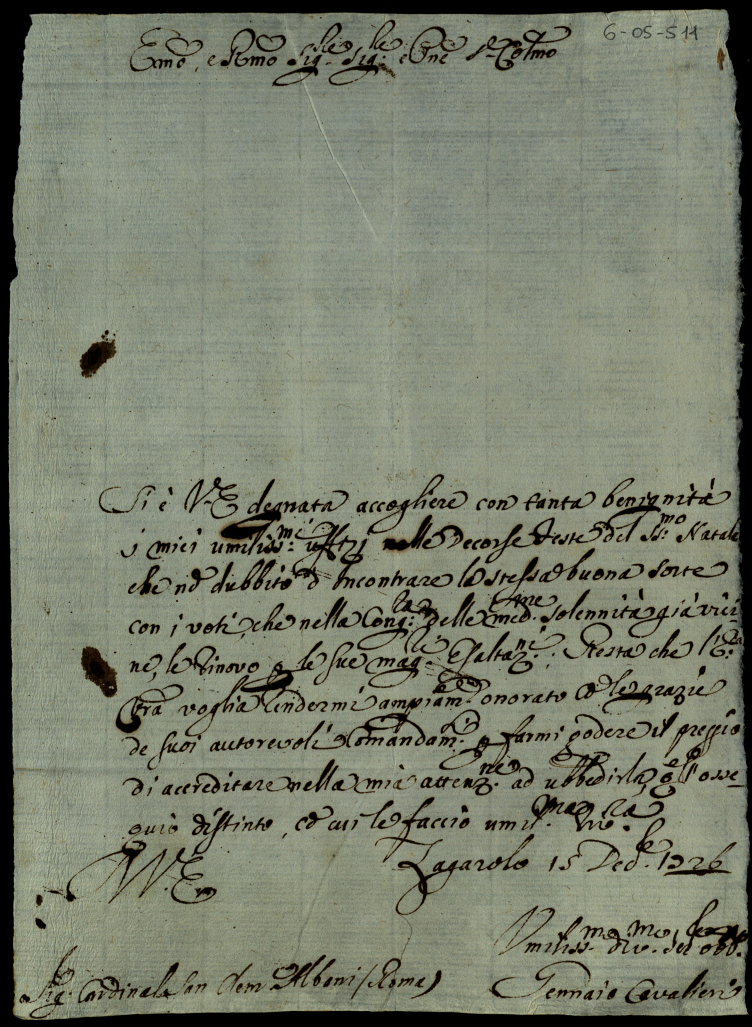 6-05-511
Emo, e Rmo Sig.re Sig.re e Pne Colmo
Si è V.E. degnata accogliere con tanta benignità
i miei umiliss.mi uffizj nelle decorse feste del SS.mo Natale
che nõ dubbito d'incontrare la stessa buona sorte
con i voti, che nella Cong.ra delle med.me solennità già vici-
ne, le rinovo p le sue mag.ri Esaltaz.ni; Resta che l'E.za
Vrã voglia rendermi ampiam.te onorato cõ le grazie
de suoi autorevoli Comandam.ti p farmi godere il preggio
di accreditare nella mia attenz.ne ad ubbedirla, e l'osse-
quio distinto, cõ cui le faccio umil.ma riv.za
V.E. Zagarolo 15 Dec.re 1726
Umiliss.mo div.mo Ser.re obb.
Sig.r Cardinale San Clem.te Albani (Roma) Gennaio Cavalieri